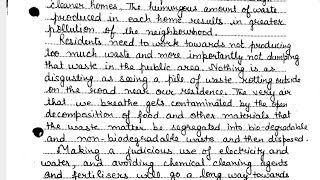 cleaner homes. The humungous amount of waste
produced in each home results in greater
pollution of the neighbourhood.
Residents need to work towards not producing
too much waste and more importantly not dumping
that waste in the public area. Nothing is as
disgusting as seeing a pile of waste rotting outside
on the road near our residence. The very air
that we breathe gets contaminated by the open
decomposition of food and other materials that
the waste matter be segregated into bio-degradable
and non-biodegradable waste and then disposed.
Making a judicious use of electricity and
water, and avoiding chemical cleaning agents
and fertilisers will go a long way towards